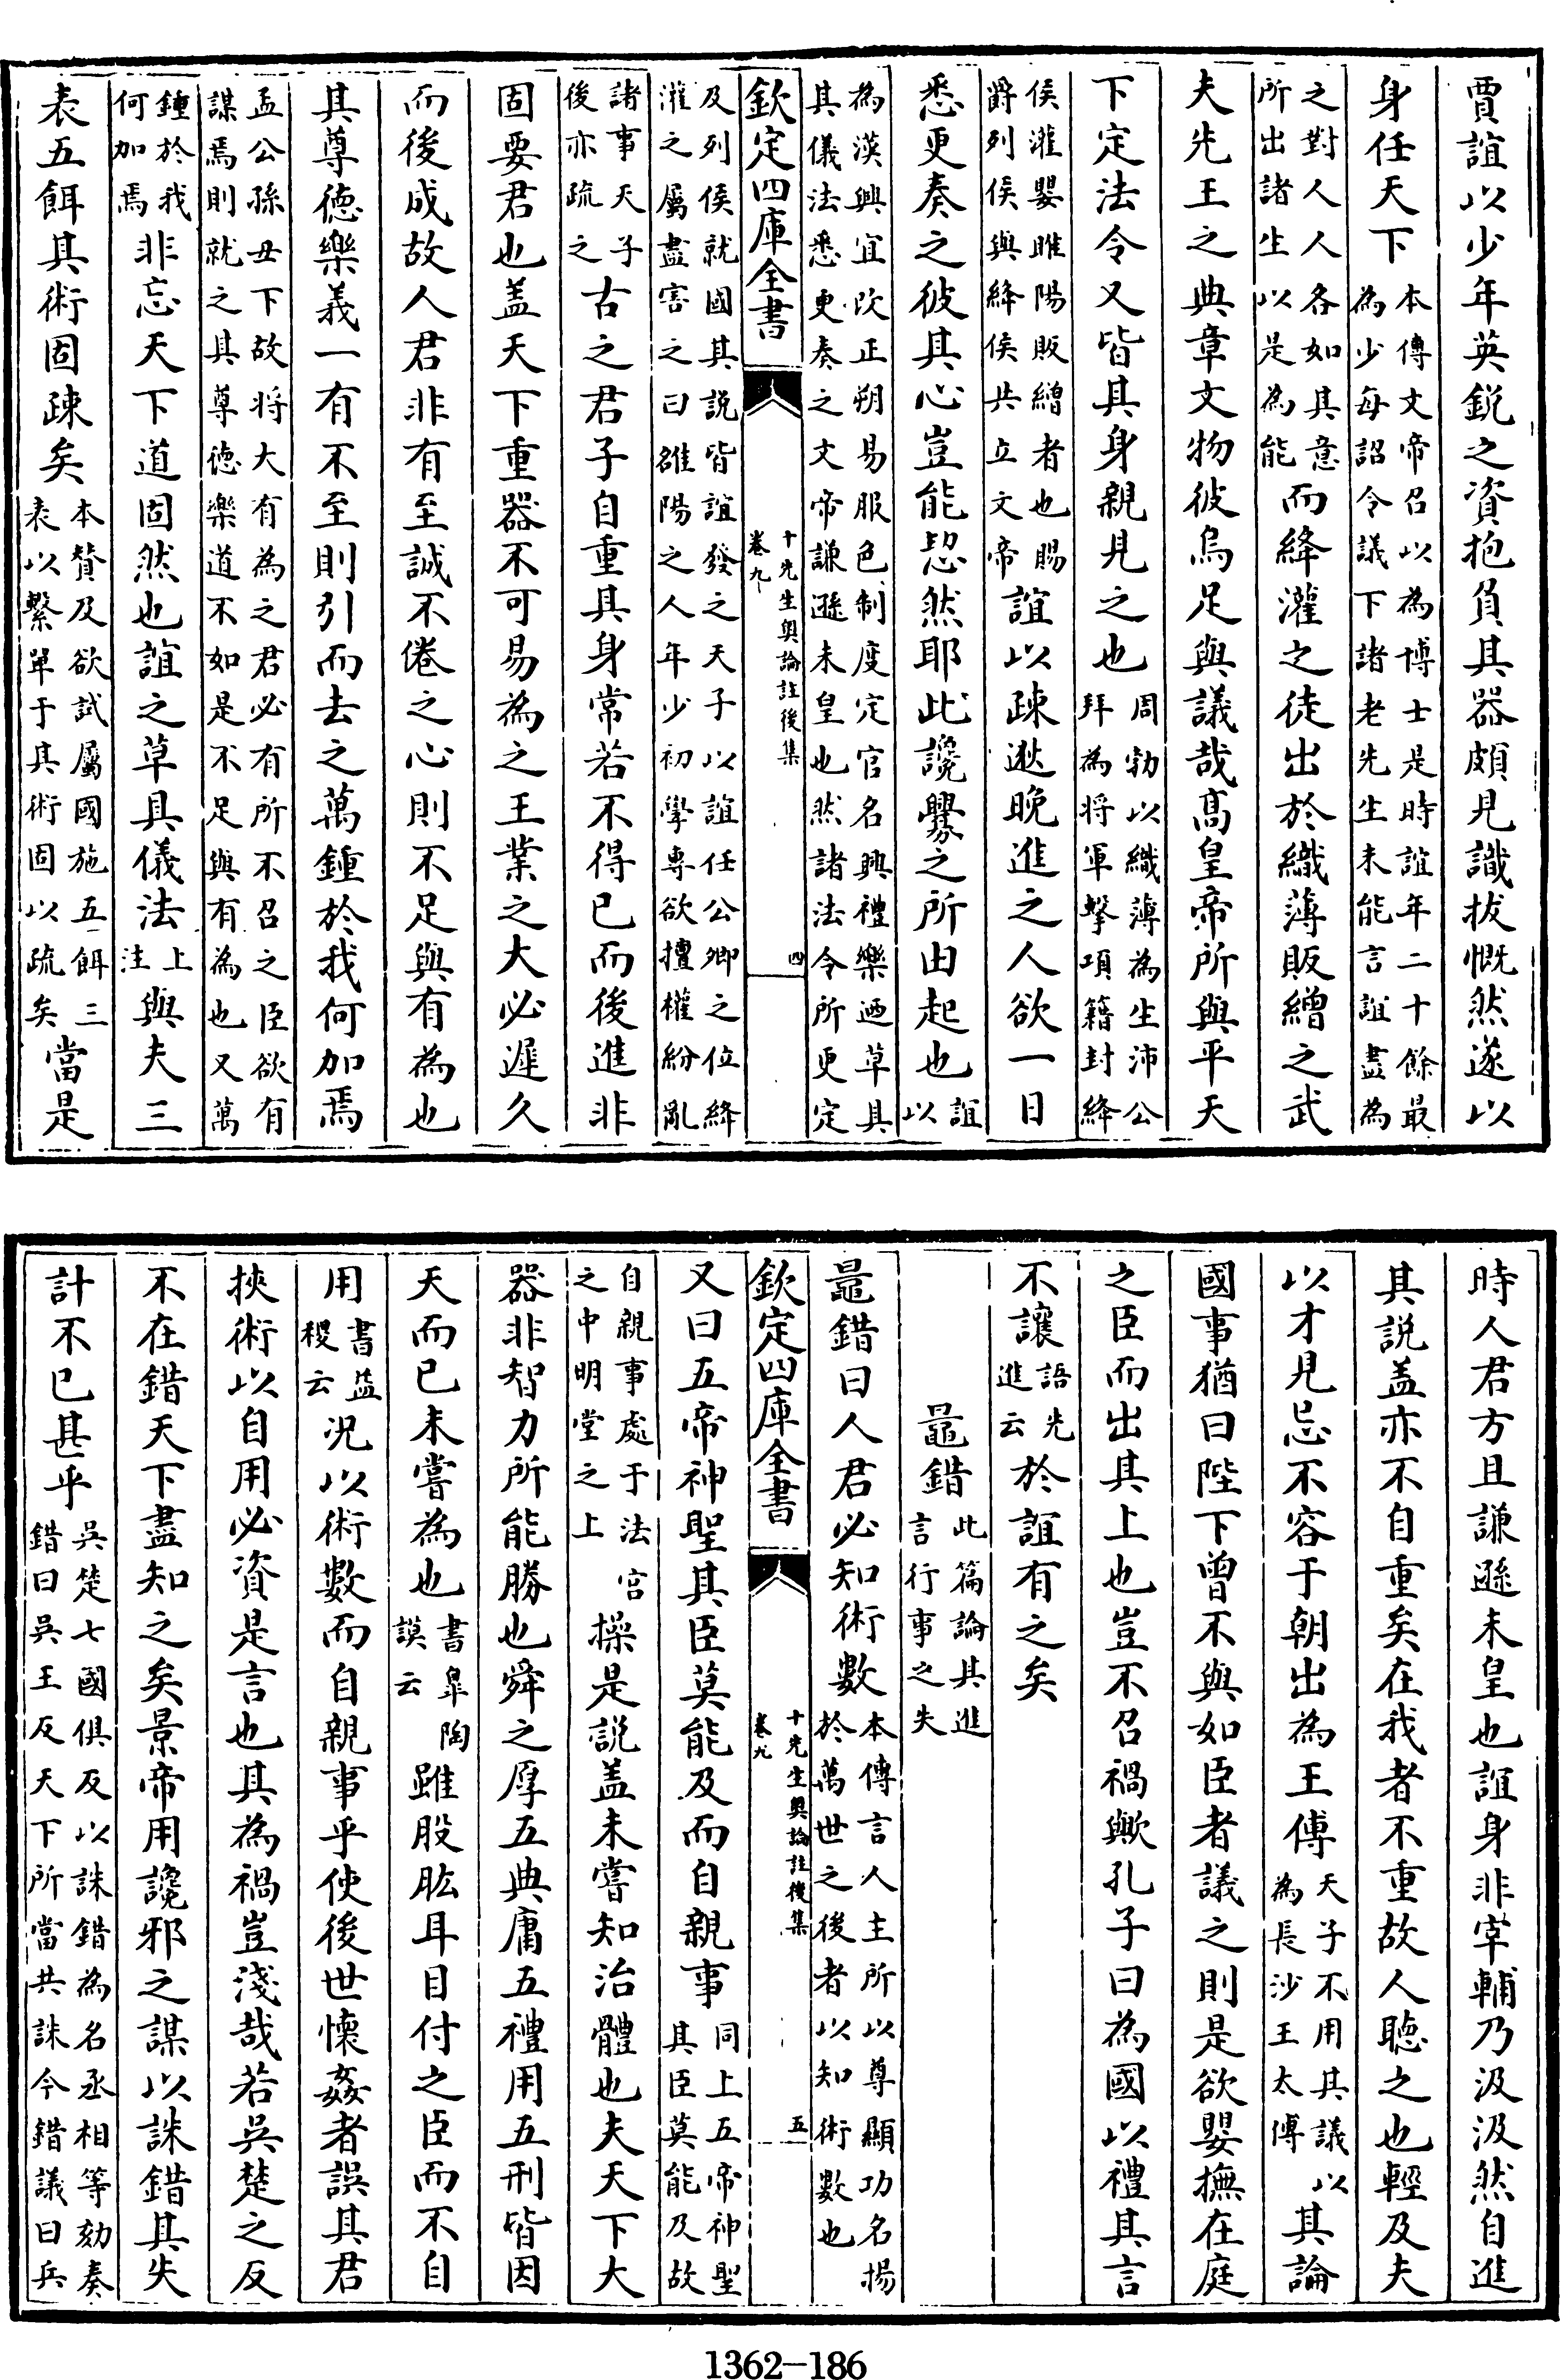 賈誼以少年英鋭之資抱負其器頗見識拔慨然遂以
身任天下本傳文帝召以為博士是時誼年二十餘最為少每詔令議下諸老先生未能言誼盡為
之對人人各如其意所出諸生以是為能而絳灌之徒出於織薄販繒之武
夫先王之典章文物彼烏足與議哉髙皇帝所與平天
下定法令又皆其身親見之也周勃以織薄為生沛公拜為将軍擊項籍封絳
侯灌嬰睢陽販繒者也賜爵列侯與絳侯共立文帝誼以疎逖晚進之人欲一日
悉更奏之彼其心豈能恝然耶此讒釁之所由起也誼以
為漢興宜改正朔易服色制度定官名興禮樂迺草具其儀法悉更奏之文帝謙遜未皇也然諸法令所更定
欽定四庫全書 十先生奥論註後集 卷九 四
及列侯就國其説皆誼發之天子以誼任公卿之位絳灌之屬盡害之曰雒陽之人年少初學專欲擅權紛亂
諸事天子後亦疏之古之君子自重其身常若不得已而後進非
固要君也盖天下重器不可易為之王業之大必遲久
而後成故人君非有至誠不倦之心則不足與有為也
其尊徳樂義一有不至則引而去之萬鍾於我何加焉
孟公孫丑下故将大有為之君必有所不召之臣欲有謀焉則就之其尊徳樂道不如是不足與有為也又萬
鍾於我何加焉非忘天下道固然也誼之草具儀法上注與夫三
表五餌其術固疎矣本贊及欲試屬國施五餌三表以繫單于其術固以疏矣當是
時人君方且謙遜未皇也誼身非宰輔乃汲汲然自進
其説盖亦不自重矣在我者不重故人聴之也輕及夫
以才見忌不容于朝出為王傅天子不用其議以為長沙王太傅其論
國事猶曰陛下曾不與如臣者議之則是欲嬰撫在庭
之臣而出其上也豈不召禍歟孔子曰為國以禮其言
不讓語先進云於誼有之矣
鼂錯此篇論其進言行事之失
鼂錯曰人君必知術數本傳言人主所以尊顯功名揚於萬世之後者以知術數也
欽定四庫全書 十先生奥論註後集 卷九 五
又曰五帝神聖其臣莫能及而自親事同上五帝神聖其臣莫能及故
自親事處于法宫之中明堂之上操是説盖未嘗知治體也夫天下大
器非智力所能勝也舜之厚五典庸五禮用五刑皆因
天而已未嘗為也書臯陶謨云雖股肱耳目付之臣而不自
用書益稷云况以術數而自親事乎使後世懐姦者誤其君
挾術以自用必資是言也其為禍豈淺哉若吳楚之反
不在錯天下盡知之矣景帝用讒邪之謀以誅錯其失
計不已甚乎吳楚七國俱反以誅錯為名丞相等劾奏錯曰吳王反天下所當共誅今錯議曰兵
1362-186